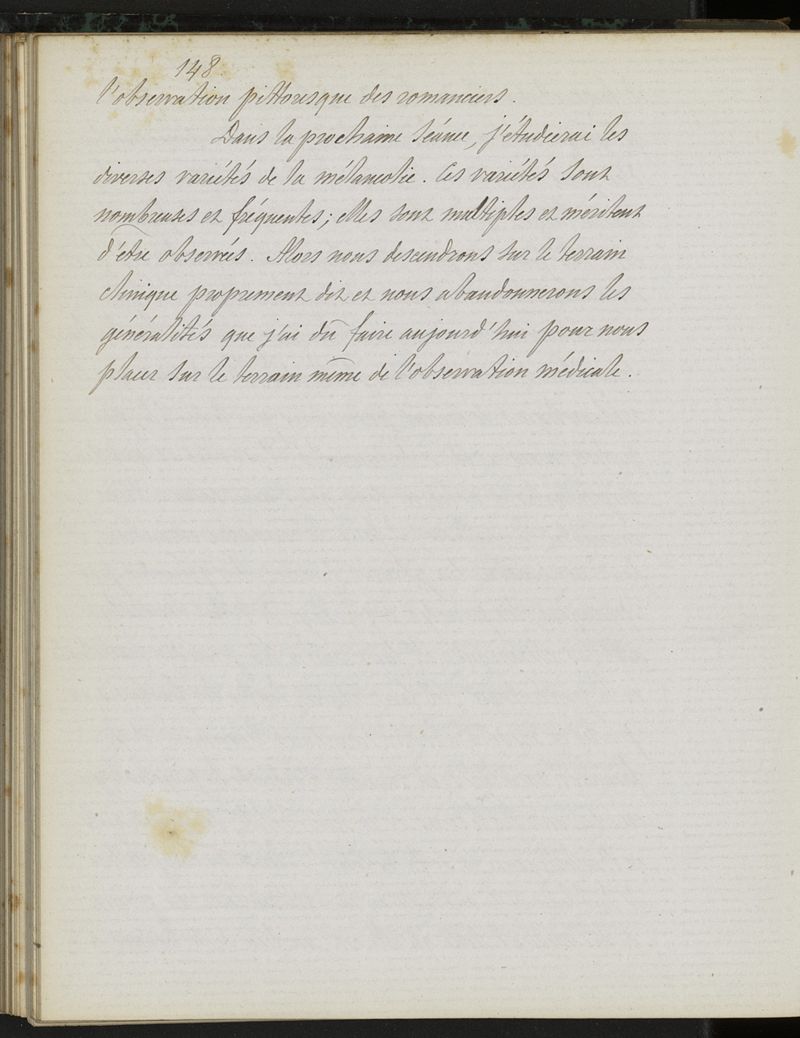 148.
l'observation pittoresque des romanciers.
Dans la prochaine séance, j'étudierai les
diverses variétés de la mélancolie. Ces variétés sont
nombreuses et fréquentes; elles sont multiples et méritent
d'être observées. Alors nous descendrons sur le terrain
clinique proprement dit et nous abandonnerons les
généralités que j'ai dû faire aujourd'hui pour nous
placer sur le terrain même de l'observation médicale.